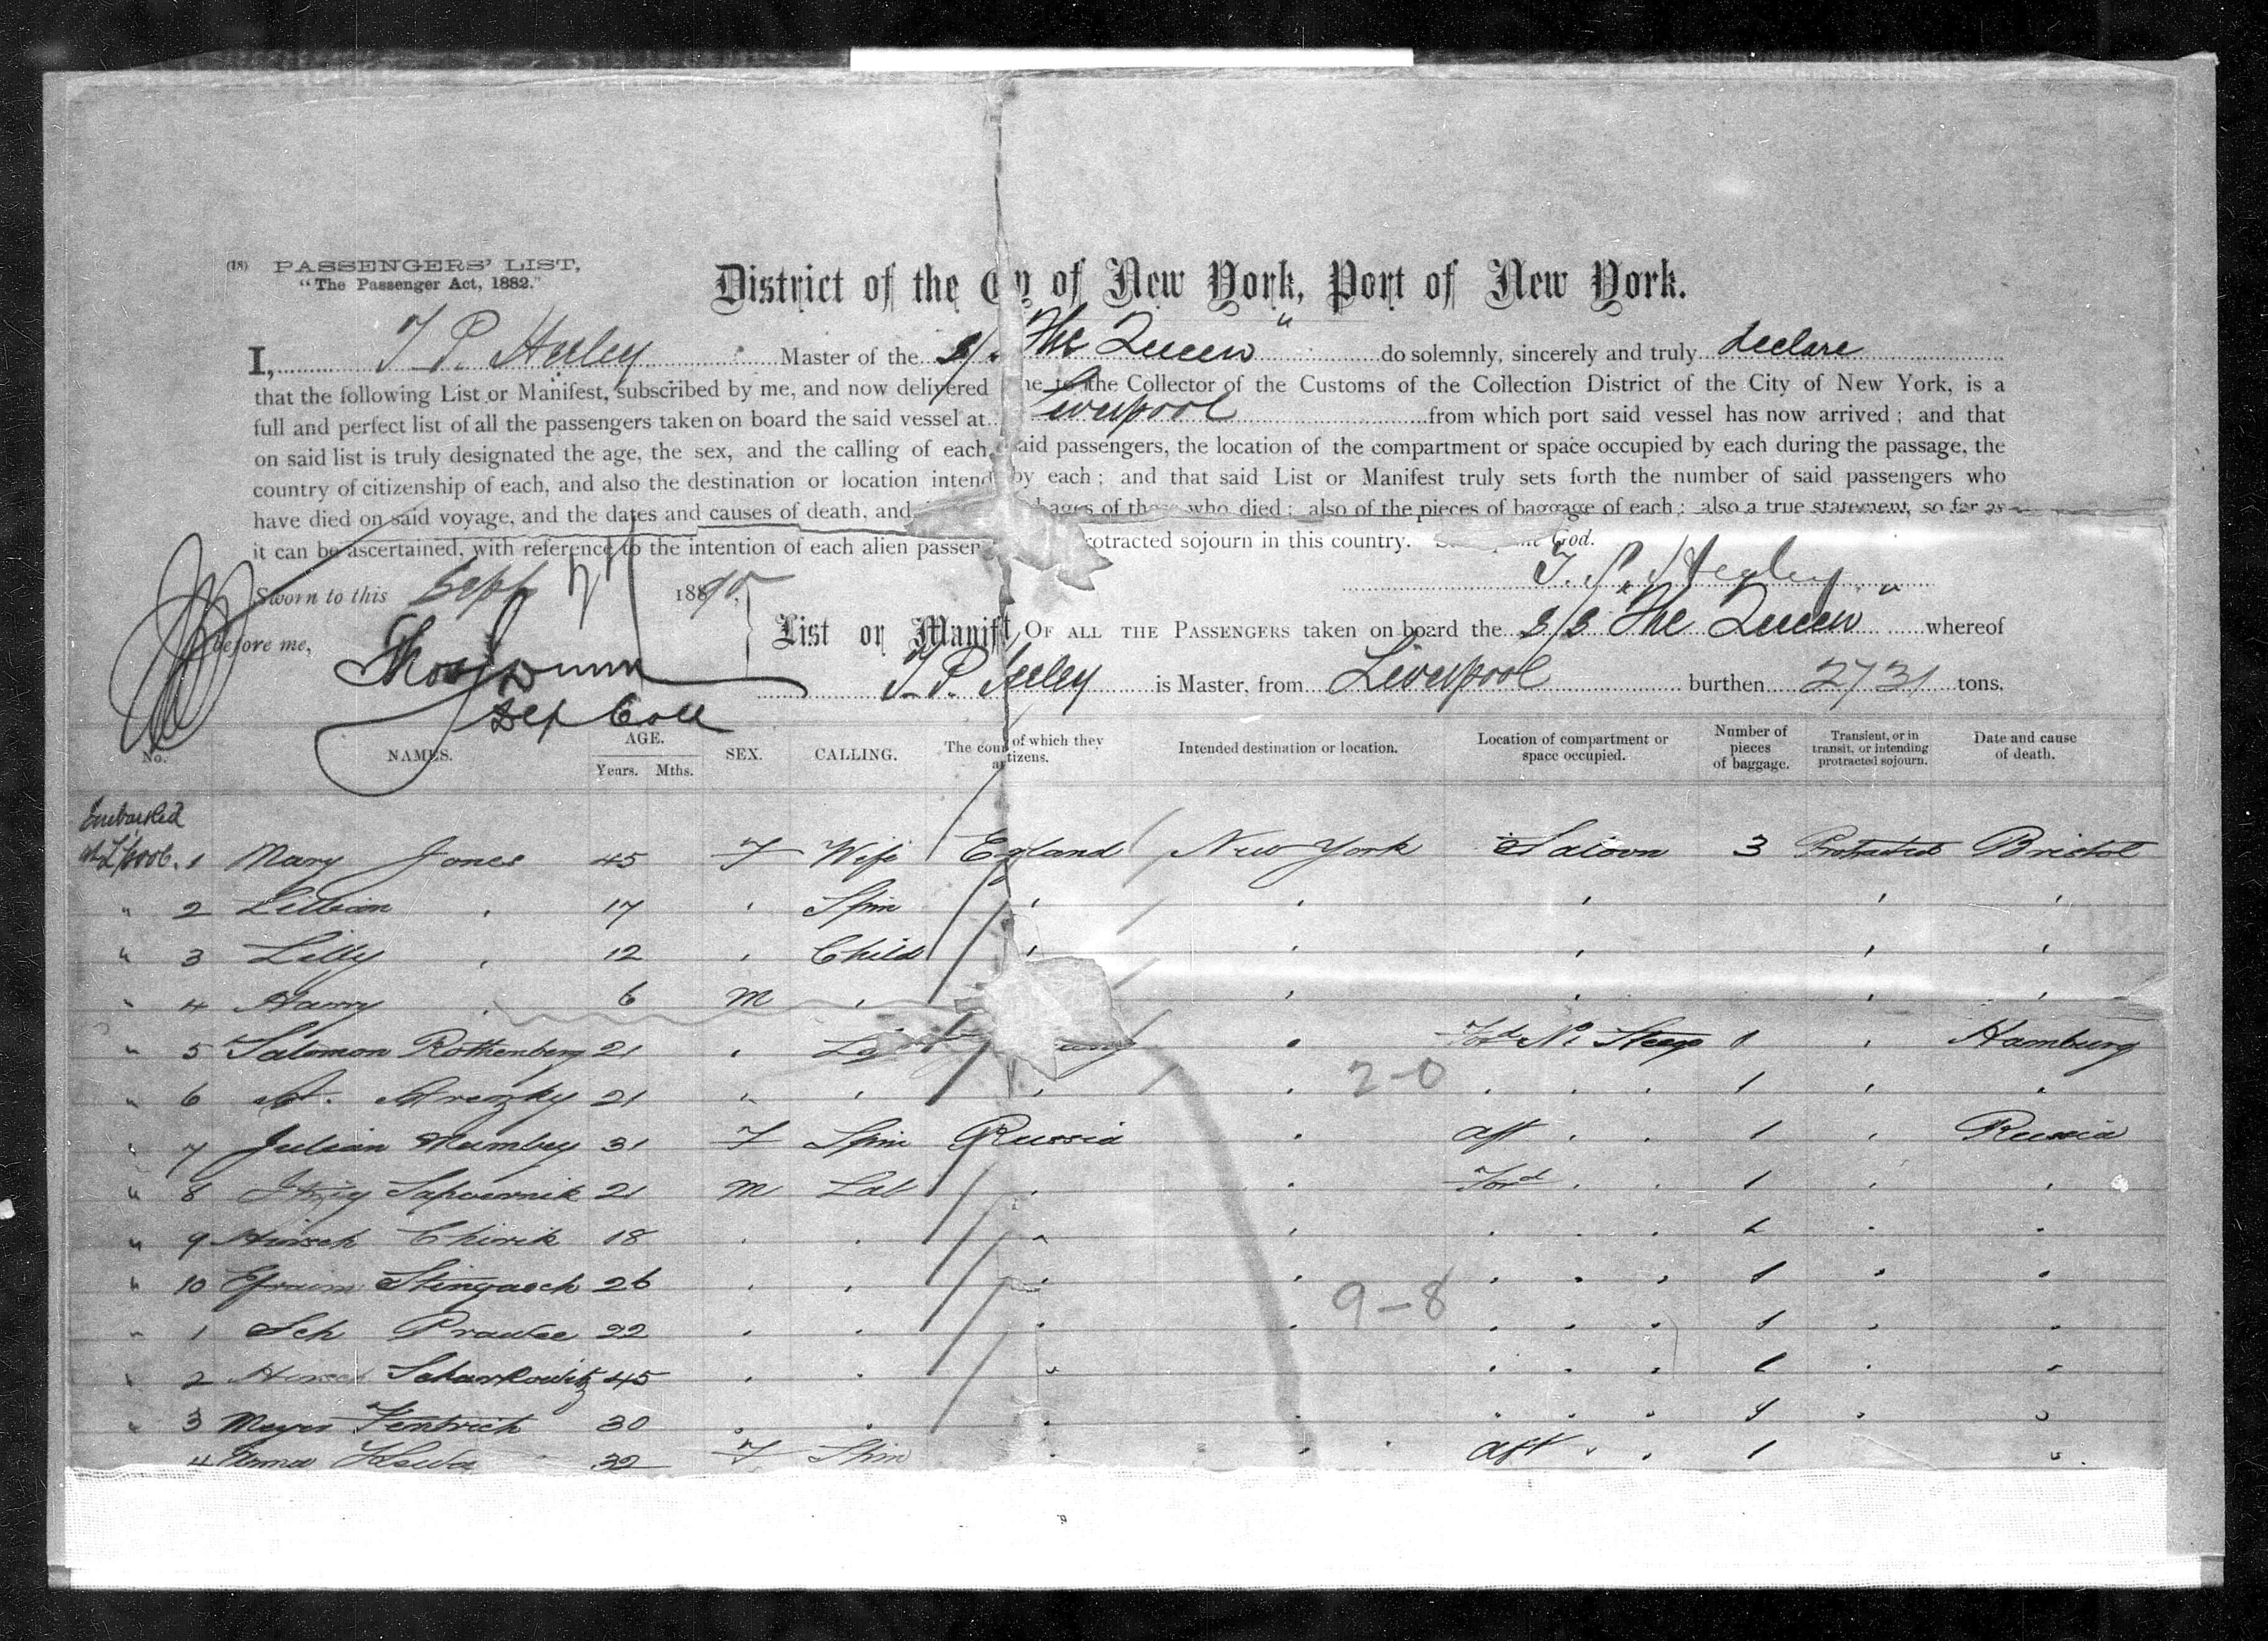 (18) PASSENGERS' LIST,
"The Passenger Act, 1882."
District of the City of New York, Port of New York.
I, T. P. Heeley Master of the S/S "The Queen" do solemnly, sincerely and truly declare
that the following List or Manifest, subscribed by me, and now delivered me to the Collector of the Customs of the Collection District of the City of New York, is a
full and perfect list of all the passengers taken on board the said vessel at Liverpool from which port said vessel has now arrived; and that
on said list is truly designated the age, the sex, and the calling of each said passengers, the location of the compartment or space occupied by each during the passage, the
country of citizenship of each, and also the destination or location intend by each; and that said List or Manifest truly sets forth the number of said passengers who
have died on said voyage, and the dates and causes of death, and ages of those who died; also of the pieces of baggage of each; also a true statement, so far as
it can be ascertained, with reference to the intention of each alien passen rotracted sojourn in this country. God.
T. P. Heeley
Sworn to this Sept 1890
before me, Thos Dunn
Dep Coll
List or Manif OF ALL THE PASSENGERS taken on board the S/S "The Queen" whereof
T. P. Heeley is Master, from Liverpool burthen 2731 tons.
No. NAMES. AGE. Years. Mths. SEX. CALLING. The cou of which they a tizens. Intended destination or location. Location of compartment or space occupied. Number of pieces of baggage. Transient, or in transit, or intending protracted sojourn. Date and cause of death.
Embarked
at L'pool. 1 Mary Jones 45 F Wife England New York Saloon 3 Protracted Bristol
" 2 Lillian " 17 " Spin " " " " "
" 3 Lilly " 12 " Child " " " " "
" 4 Harry " 6 M " " " " "
" 5 Salomon Rothenberg 21 " " Ford No 1 Steege 1 " Hamburg
2-0
" 6 21 " " " " " " " 1 " "
" 7 Julian Mumbey 31 F Spin Russia " aft " " 1 " Russia
" 8 Itzig Sapoernik 21 M Lab " " Ford " " 1 " "
" 9 Hirsch Chirik 18 " " " " " " " 1 " "
" 10 Efraim Stingasch 26 " " " " " " " 1 " "
9-8
" 1 Sch 22 " " " " " " " 1 " "
" 2 Hirsch Scharkowitz 45 " " " " " " 1 " "
" 3 Meyer Fentrich 30 " " " " " " " 1 " "
4 32 F Spin " " aft " " 1 "